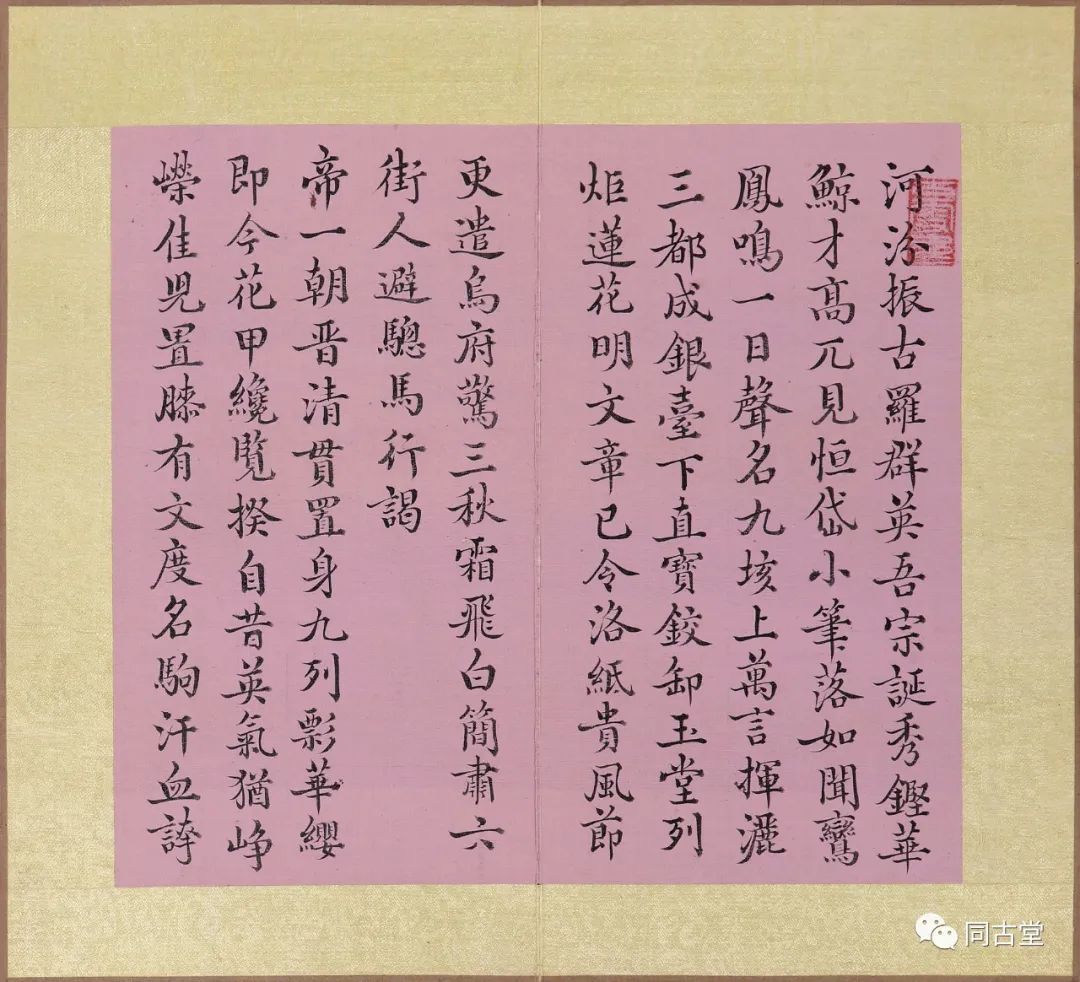 河汾振古羅群英吾宗誕秀鏗華
鯨才高兀見恒岱小筆落如聞鸞
鳳鳴一日聲名九垓上萬言揮灑
三都成銀臺下直寶鉸卸玉堂列
炬蓮花明文章已令洛紙貴風節
更遣烏府驚三秋霜飛白簡肅六
街人避驄馬行謁
帝一朝晋清貫置身九列彯華纓
即今花甲纔覽揆自昔英氣猶崢
嶸佳兒置膝有文度名駒汗血誇
同古堂